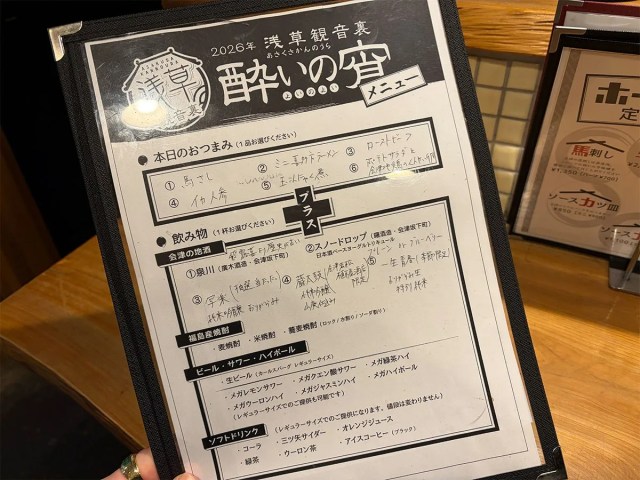 2026年 浅草観音裏
あさくさかんのうら
酔いの宵
よいのよい
メニュー
浅草
音裏
● 本日のおつまみ(1品お選びください)
① 馬さし
② ミニ喜多方ラーメン
③ ローストビーフ
④ イカ人参
⑤ 玉こんにゃく煮
⑥ ポテトサラダと
プラス
● 飲み物(1杯お選びください)
会津の地酒
①泉川(廣木酒造・会津坂下町)
②スノードロップ(曙酒造・会津坂下町)
日本酒ベースヨーグルトリキュール
プレーン or ブルーベリー
③ 写楽
純米吟醸
④
会津若松
限定
⑤ 一生青春
季節限定
特別純米
福島産焼酎
・麦焼酎 ・米焼酎 ・蕎麦焼酎(ロック/水割り/ソーダ割り)
ビール・サワー・ハイボール
・生ビール(カールスバーグ レギュラーサイズ)
・メガレモンサワー ・メガクエン酸サワー ・メガ緑茶ハイ
・メガウーロンハイ ・メガジャスミンハイ ・メガハイボール
(レギュラーサイズでのご提供も可能です)
ソフトドリンク
(レギュラーサイズでのご提供になります。値段は変わりません)
・コーラ ・三ツ矢サイダー ・オレンジジュース
・緑茶 ・ウーロン茶 ・アイスコーヒー(ブラック)
ホー
定
馬刺し
ソースカツ皿